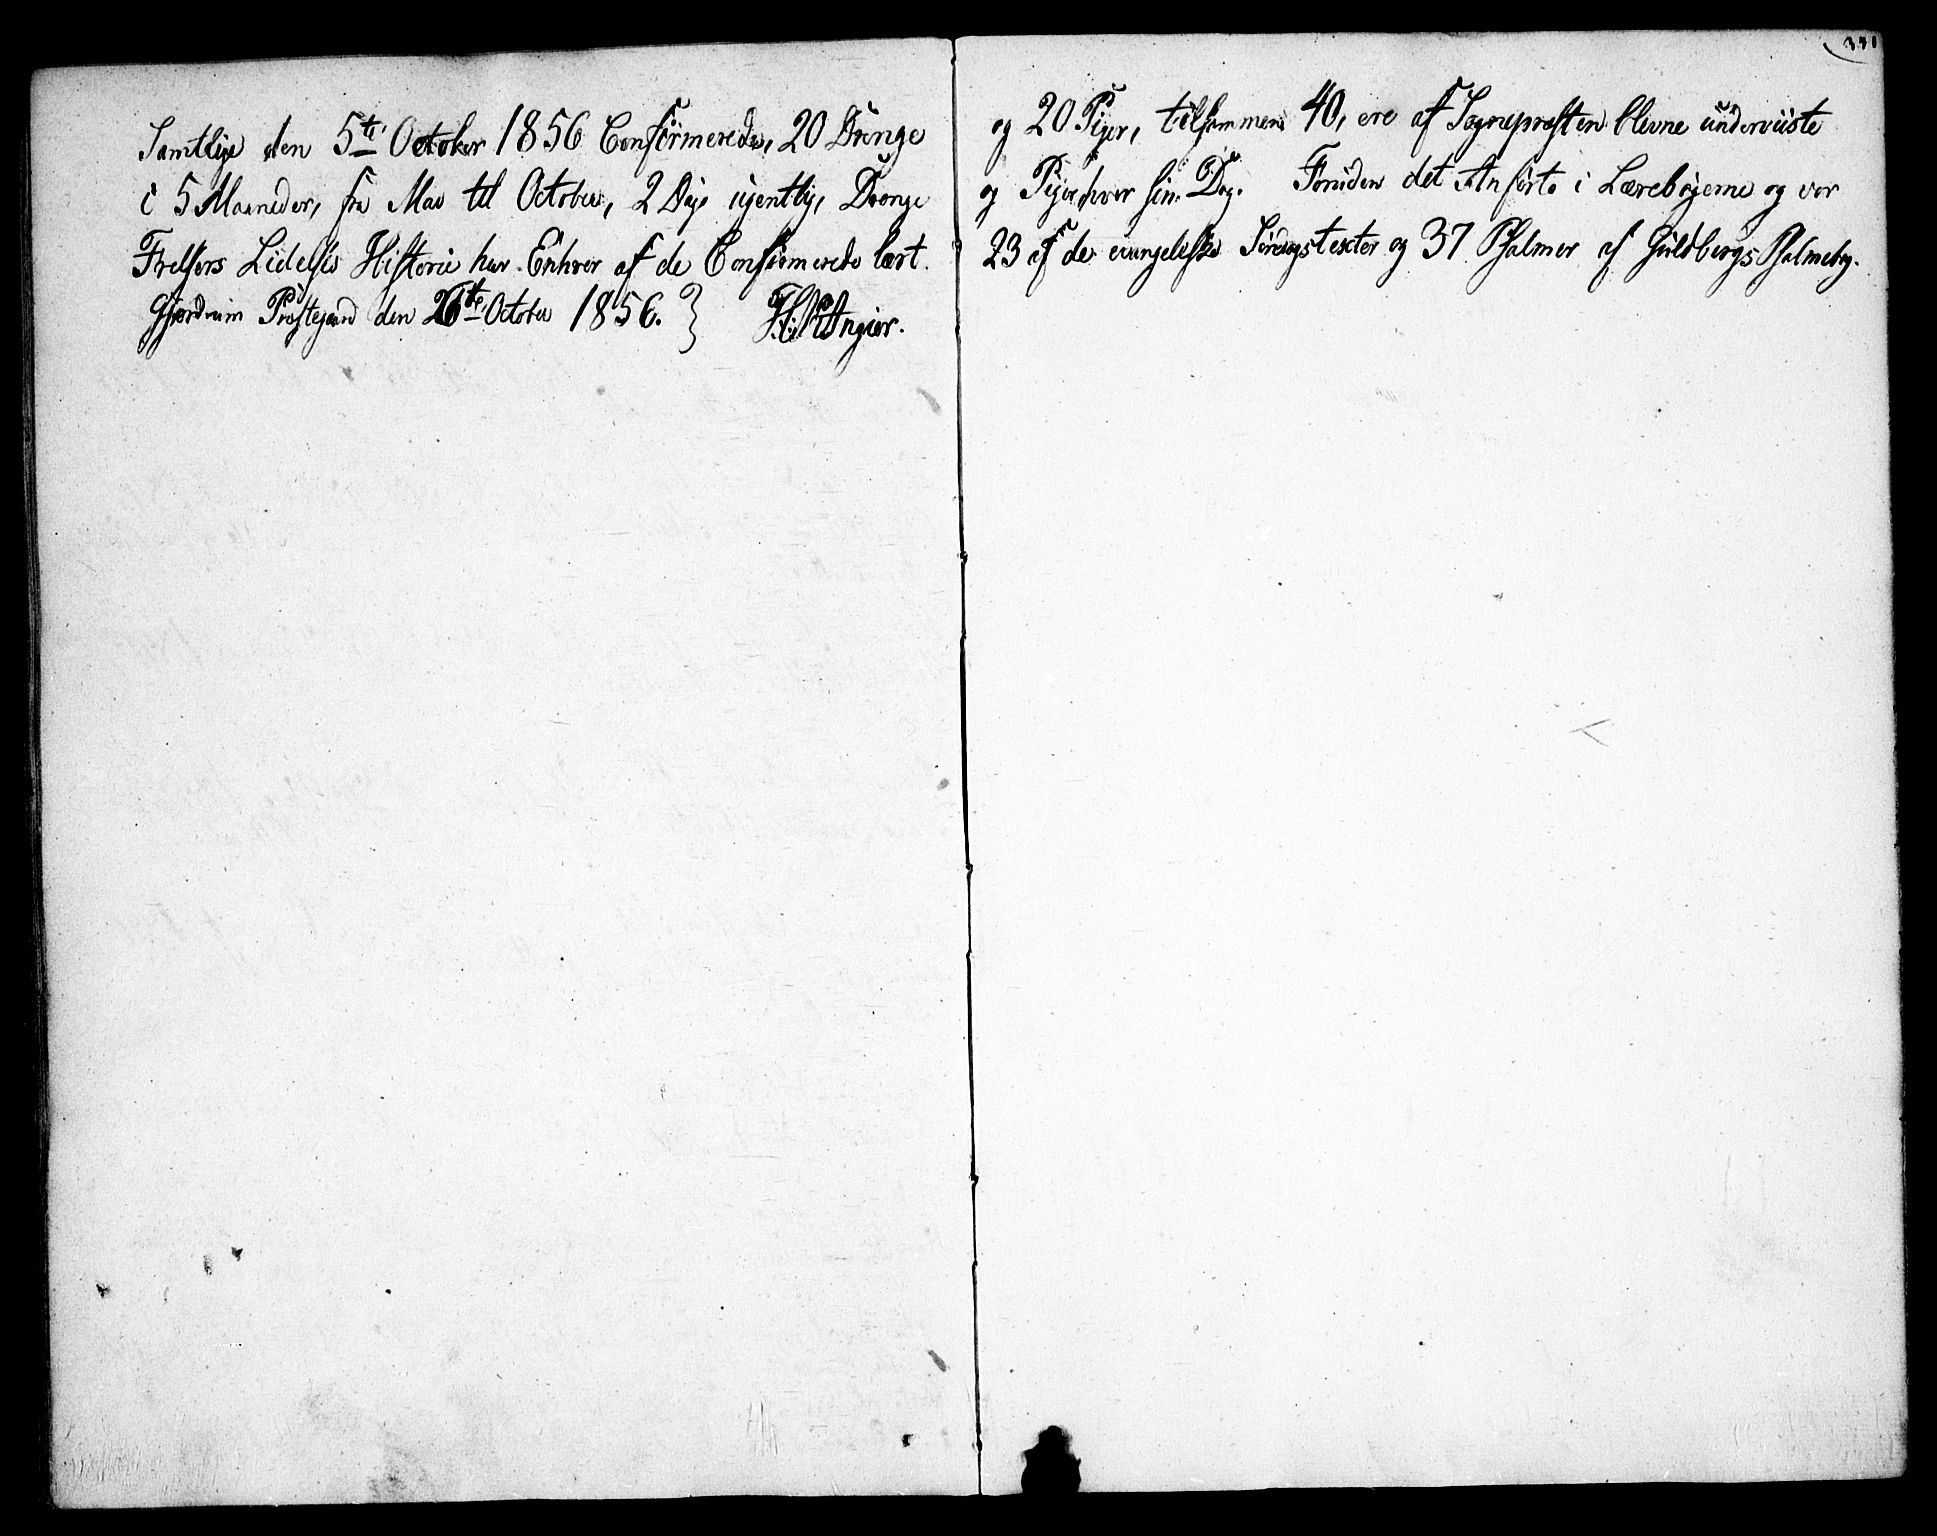 Samtlige den 5te October 1856 Confirmerede, 20 Drenge
og 20 Piger, tilsammen 40, ere af Sognepræsten blevne underviiste
i 5 Maaneder, fra Mai til October, 2 Dage ugentlig, Drenge
og Piger hver sin Dag. Foruden det Anførte i Lærebøgerne og vor
Frelsers Lidelses Historie har Enhver af de Confirmerede lært
23 af de evangeliske Søndagstexter og 37 Psalmer af Guldbergs Psalmebog.
Gjerdrum Præstegaard den 26te October 1856. } Angier.